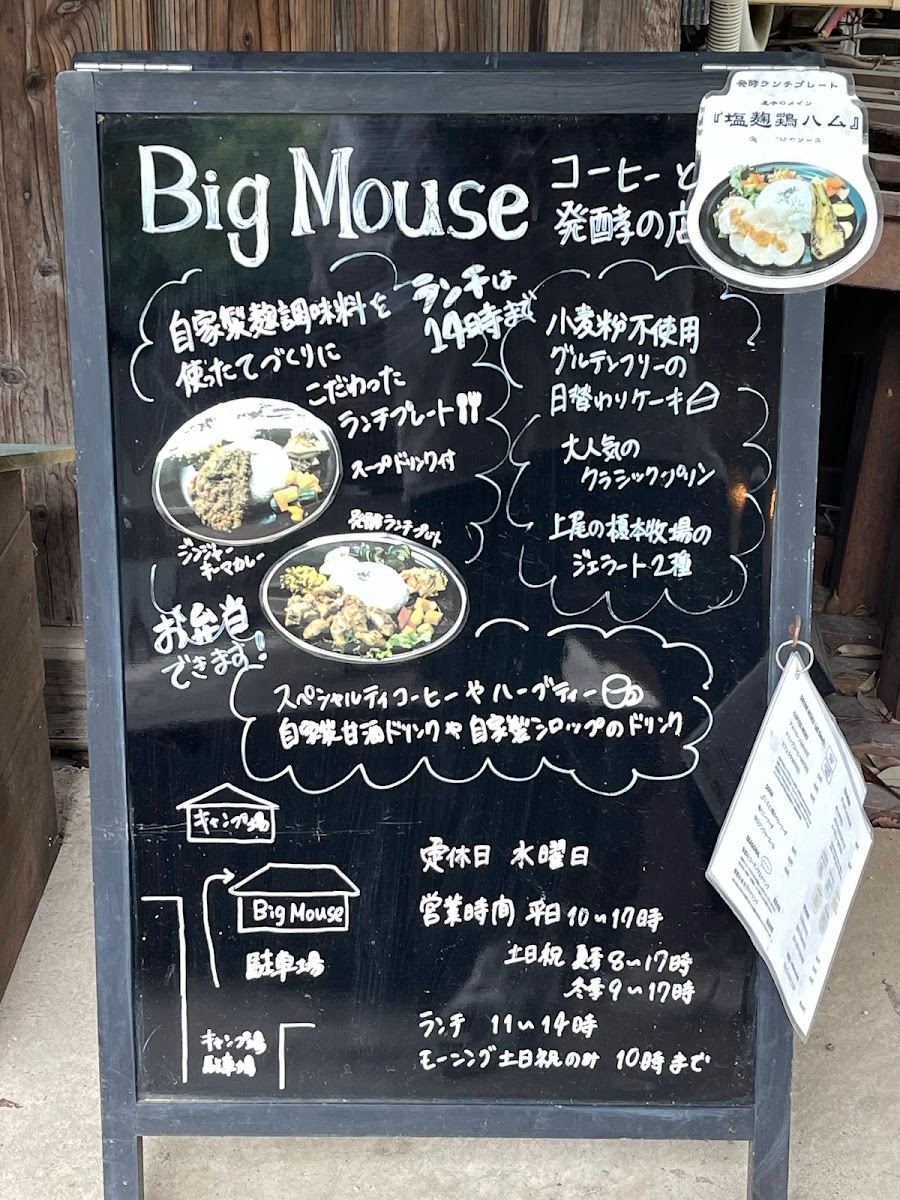 発酵ランチプレート
『塩麹鶏ハム』
Big Mouse
コーヒーと
発酵の店
ランチは
14時まで
自家製麹調味料を
使ったてづくりに
こだわった
ランチプレート
スープドリンク付
ジンジャー
キーマカレー
発酵ランチプレート
お弁当
できます!
小麦粉不使用
グルテンフリーの
日替わりケーキ
大人気の
クラシックプリン
上尾の榎本牧場の
ジェラート2種
スペシャルティコーヒーやハーブティー
自家製甘酒ドリンクや自家製シロップのドリンク
キャンプ場
Big Mouse
駐車場
キャンプ場
駐車場
定休日 水曜日
営業時間 平日10〜17時
土日祝 夏季8〜17時
冬季9〜17時
ランチ 11〜14時
モーニング土日祝のみ 10時まで